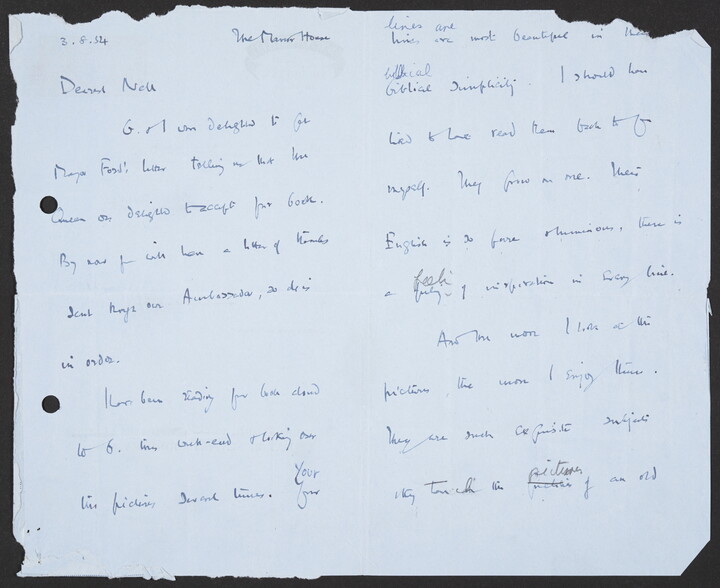 3.8.54 The Manor House
Dearest Nell
G. & I were delighted to get
Major Ford's letter telling us that the
Queen was delighted to accept your book.
By now you will have a letter of thanks
sent through our Ambassador, so all is
in order.
I have been reading your book aloud
to G. this week-end & looking over
the pictures several times. Your
your
lines are
lines are most beautiful in their
biblical
biblical simplicity. I should have
liked to have read them back to you
myself. They grow on me. Their
English is so pure & luminous, there is
a feeling of inspiration in every line.
And the more I look at the
pictures, the more I enjoy them.
They are such exquisite subjects
& they touch the pictures
of an old